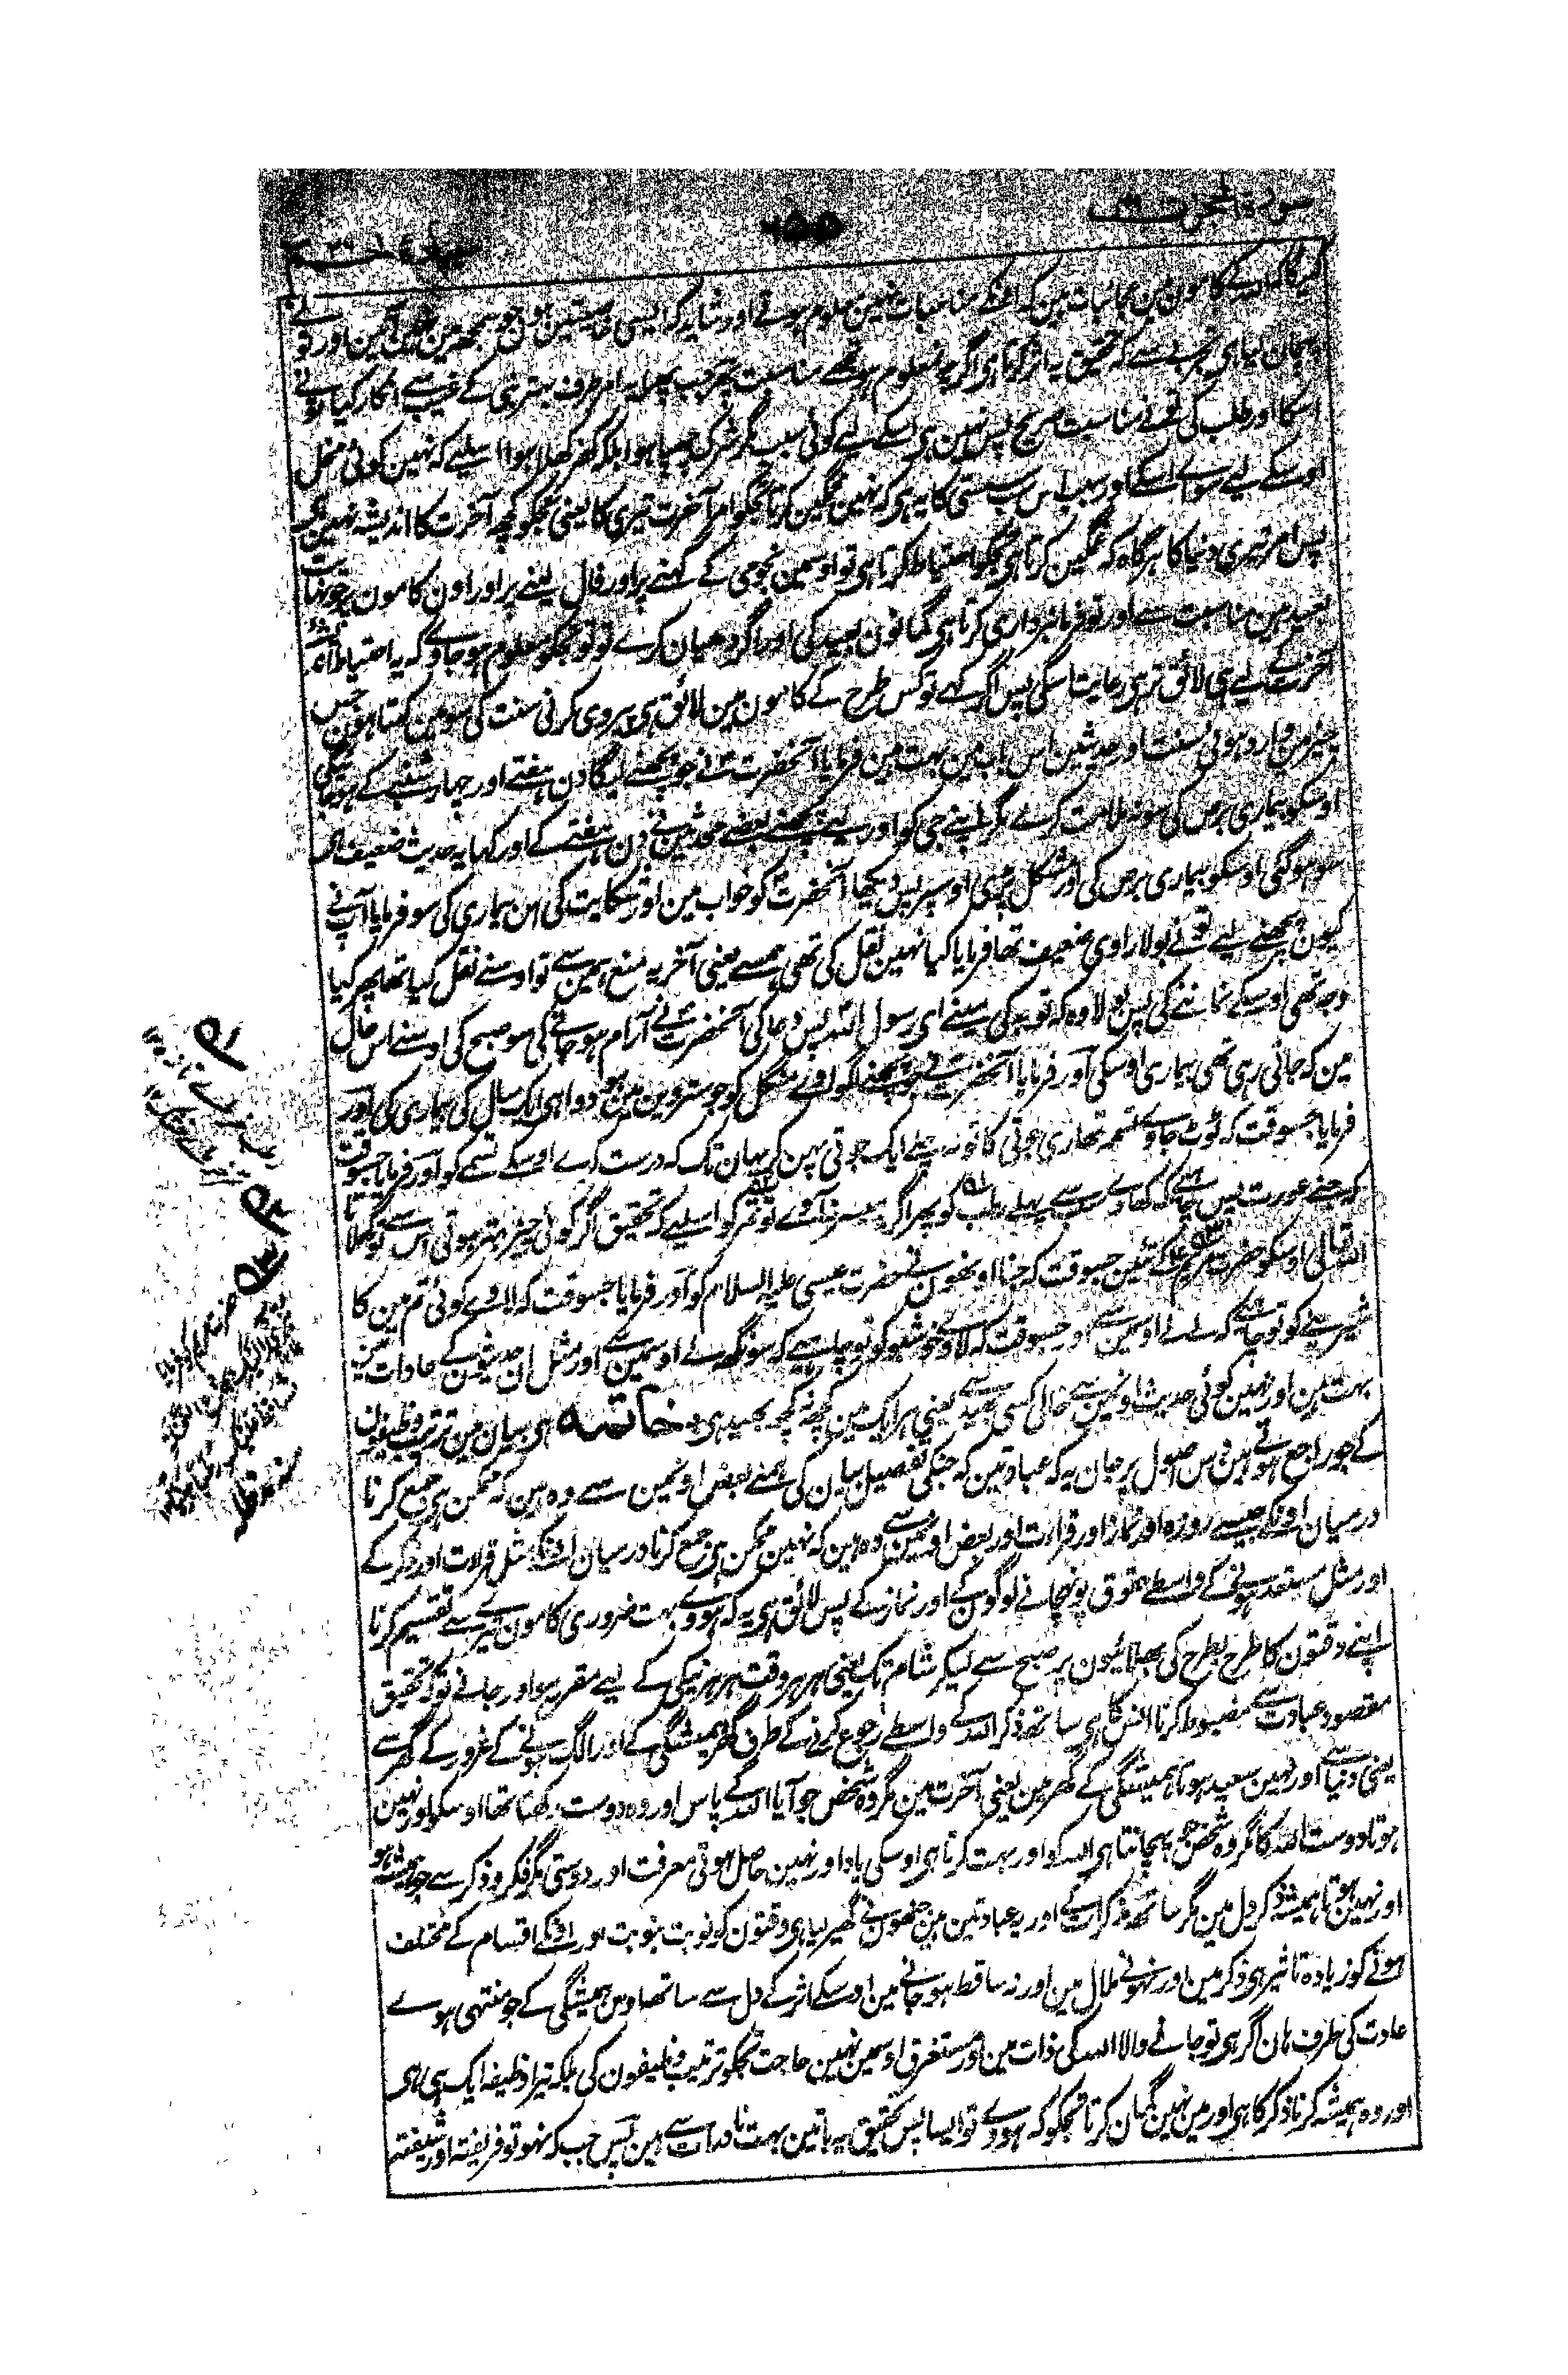 سورة الحجرات
۲۵۵
کامون مین عجائبات مین کہ اونکے مناسبات نہین معلوم ہوتے اور شاید کہ ایسی خاصیتین ہون جو سمجھ مین نہین آتین اور تو نے
کہ تحقیق یہ اثر کرتا ہی اگرچہ نہ معلوم ہو تجھے مناسبت پھر جب پھیلا یہ امر طرف بہتری کے غیب سے انکار کیا تو نے
اسکا اور طلب کی تو نے مناسبت صریح پس نہین ہی اسکے لیے کوئی سبب مگر شرک چھپا ہوا بلکہ کفر کھلا ہوا اسلیے کہ نہین کوئی محمل
اوسکے لیے سواے اسکے اور سبب اس سب سستی کا یہ ہی کہ نہین غمگین کرتا تجھکو امر آخرت تیری کا یعنی تجھکو کچھ آخرت کا اندیشہ نہین ہی
پس امر تیری دنیا کا ہرگاہ کہ غمگین کرتا ہی تجھکو احتیاط کرتا ہی تو اوسمین نجومی کے کہنے پر اور فال لینے پر اور اون کامون پر جو نہایت
بعید ہین مناسبت سے اور تو فرمانبرداری کرتا ہی گمانون بعید کی اور اگر دھیان کرے تو تو تجھکو معلوم ہو جاوے کہ یہ احتیاط
آخرت کے لیے ہی لائق تر ہی رعایت اسکی پس اگر کہے تو کس طرح کے کامون مین لائق ہی پیروی کرنی سنت کی سو مین کہتا ہون جس
چیز مین وارد ہوئی سنت اور حدیثین اس باب مین بہت ہین فرمایا آنحضرت نے جو پچھنے لیگا دن ہفتے اور چہار شنبے کے ہو جائیگی
اوسکو بیماری برص کی سو نہ ملامت کرے مگر اپنے جی کو اور لیے پچھنے بعضے محدثین نے دن ہفتے کے اور کہا یہ حدیث ضعیف ہی
سو ہو گئی اوسکو بیماری برص کی اور مشکل پڑی اوسپر پس دیکھا آنحضرت کو خواب مین تو شکایت کی اس بیماری کی سو فرمایا آپ نے
کیون پچھنے لیے تو نے بولا راوی ضعیف تھا فرمایا کیا نہین نقل کی تھی ہمسے یعنی آخر یہ منع ہمین سے تو اوسنے نقل کیا تھا پھر کیا
وجہ تھی اوسکے نماننے کی پس بولا وہ کہ توبہ کی مینے ای رسول اللہ پس دعا کی آنحضرت نے آرام ہو جانے کی سو صبح کی اوسنے اس حال
مین کہ جاتی رہی تھی بیماری اوسکی اور فرمایا آنحضرت نے پچھنے لگوانے منگل کو جو سترھوین مین ہو دوا ہی ایک سال کی بیماری کی اور
فرمایا جسوقت کہ ٹوٹ جاوے تسمہ تمھاری جوتی کا تو نہ چلے ایک جوتی پہن کر یہان تک کہ درست کرے اوسکے تسمے کو اور فرمایا جسوقت
کہ جنے عورت پس چاہیے کہ کھاوے سب سے پہلے رطب کو پھر اگر یہ میسر نہ آوے تو تمر کو اسلیے کہ تحقیق اگر کوئی چیز بہتر ہوتی اس سے تو کھلاتا
اللہ تعالی اوسکو حضرت مریم کے تئین جسوقت کہ جنا اونھون نے حضرت عیسی علیہ السلام کو اور فرمایا جسوقت کہ لاوے کوئی تم مین کا
شیرینی کو تو چاہیے کہ لے لے اوسمین سے اور جسوقت کہ لاوے خوشبو کو تو چاہیے کہ سونگھ لے اوسمین سے اور مثل ان حدیثون کے عادات مین
بہت ہین اور نہین کوئی حدیث اونمین سے خالی کسی بھید سے یعنی ہر ایک مین کچھ نہ کچھ بھید ہی خاتمہ ہی بیان مین ترتیب وظیفون
کے جو راجع ہوتے ہین دس اصول پر جان یہ کہ عبادتین کہ جنکی تفصیل بیان کی ہمنے بعض اونمین سے وہ ہین کہ ممکن ہی جمع کرنا
درمیان اونکے جیسے روزہ اور نماز اور قراءت اور بعض اونمین سے وہ ہین کہ نہین ممکن ہی جمع کرنا درمیان اونکے مثل قراءت اور ذکر کے
اور مثل مستعد ہونے کے واسطے حقوق پہونچانے لوگون کے اور نماز کے پس لائق ہی یہ کہ ہووے بہت ضروری کامون تیرے سے تقسیم کرنا
اپنے وقتون کا طرح بطرح کی بھلائیون پر صبح سے لیکر شام تک یعنی ہر ہر وقت ہر ہر نیکی کے لیے مقرر ہو اور جانے تو کہ تحقیق
مقصود عبادت سے مضبوط کرنا انس کا ہی ساتھ ذکر اللہ کے واسطے رجوع کرنے کے طرف گھر ہمیشگی کے اور الگ ہونے کے غرور کے گھر سے
یعنی دنیا سے اور نہین سعید ہوتا ہمیشگی کے گھر مین یعنی آخرت مین مگر وہ شخص جو آیا اللہ کے پاس اور وہ دوست رکھتا تھا اوسکو اور نہین
ہوتا دوست اللہ کا مگر وہ شخص جو پہچانتا ہی اللہ کو اور بہت کرتا ہی اوسکی یاد اور نہین حاصل ہوتی معرفت اور دوستی مگر فکر و ذکر سے جو ہمیشہ ہو
اور نہین ہوتا ہمیشہ ذکر دل مین مگر ساتھ مذکرات کے اور یہ عبادتین ہین جنھون نے گھیر لیا ہی وقتون کو نوبت بنوبت اور اونکے اقسام کے مختلف
ہونے کو زیادہ تاثیر ہی ذکر مین اور نہونے ملال مین اور نہ ساقط ہو جانے مین اوسکے اثر کے دل سے ساتھ اوس ہمیشگی کے جو منتہی ہووے
عادت کی طرف ہان اگر ہی تو جانے والا اللہ کی ذات مین اور مستغرق اوسمین نہین حاجت تجھکو ترتیب وظیفون کی بلکہ تیرا وظیفہ ایک ہی ہی
اور وہ ہمیشہ کرنا ذکر کا ہی اور مین نہین گمان کرتا تجھکو کہ ہووے تو ایسا پس تحقیق یہ باتین بہت نادرات سے ہین پس جب کہ نہو تو فریفتہ اور شیفتہ